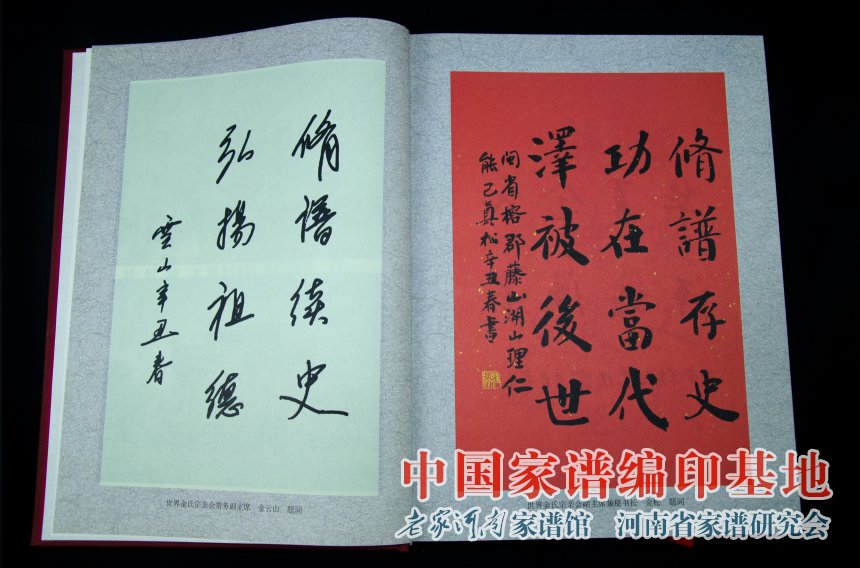 脩譜续史
弘揚祖德
雲山辛丑春
世界金氏宗亲会常务副主席 金云山 题词
脩譜存史
功在當代
澤被後世
闽省榕郡藤山湖山理仁
能己真松辛丑春書
世界金氏宗亲会副主席兼秘书长 金松 题词
中国家谱编印基地
老家河南家谱馆 河南省家谱研究会